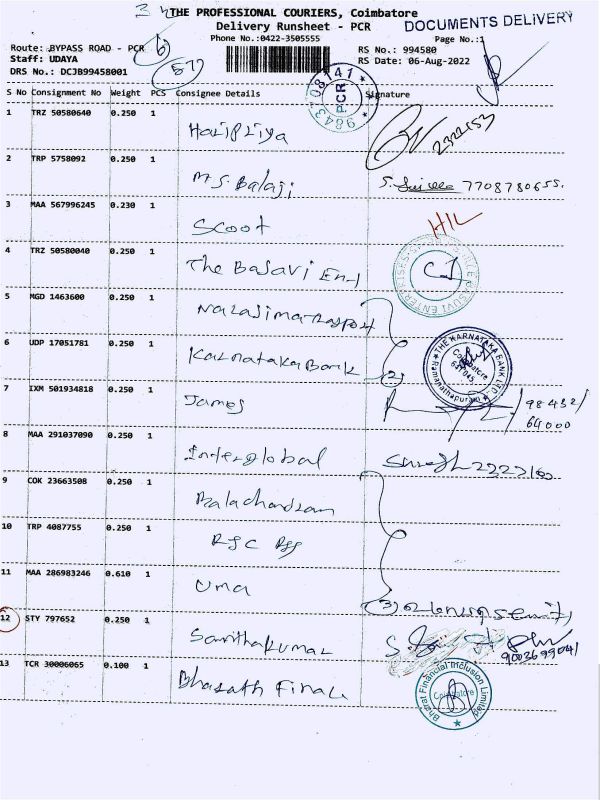 THE PROFESSIONAL COURIERS, Coimbatore
DOCUMENTS DELIVERY
Delivery Runsheet - PCR
Phone No.:0422-3505555
Page No.:1
Route: BYPASS ROAD - PCR
RS No.: 994580
Staff: UDAYA
RS Date: 06-Aug-2022
DRS No.: DCJB99458001
577
9843708141 PCR
S No Consignment No Weight PCS Consignee Details Signature
1 TRZ 50580640 0.250 1 Haripriya 2322153
2 TRP 5758092 0.250 1 M.S. Balaji 7708780655.
3 MAA 567996245 0.230 1 Scoot
4 TRZ 50580040 0.250 1 The Basavi Ent
5 MGD 1463600 0.250 1
6 UDP 17051781 0.250 1 Karnataka Bank (2)
THE KARNATAKA BANK LTD. Ramanathapuram Coimbatore 641045
7 IXM 501934818 0.250 1 James 98432/
64000
8 MAA 291037090 0.250 1 Interglobal Suresh
9 COK 23663508 0.250 1 Balachandran
10 TRP 4087755 0.250 1
11 MAA 286983246 0.610 1 Uma (3)
12 STY 797652 0.250 1 Santhakumar 9003699041
13 TCR 30006065 0.100 1 Bharath Finan
Bharat Financial Inclusion Limited Coimbatore